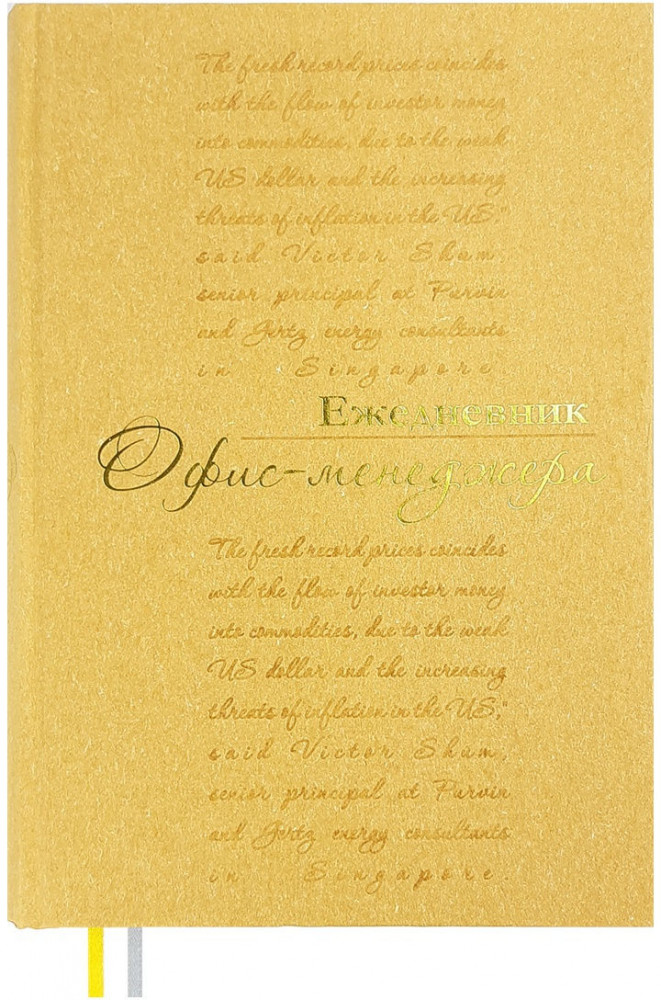 The fresh record prices coincides
with the flow of investor money
into commodities, due to the weak
US dollar and the increasing
threats of inflation in the US,"
said Victor Shum,
senior principal at Purvin
and Gertz energy consultants
in Singapore
Ежедневник
Офис-менеджера
The fresh record prices coincides
with the flow of investor money
into commodities, due to the weak
US dollar and the increasing
threats of inflation in the US,"
said Victor Shum,
senior principal at Purvin
and Gertz energy consultants
in Singapore.